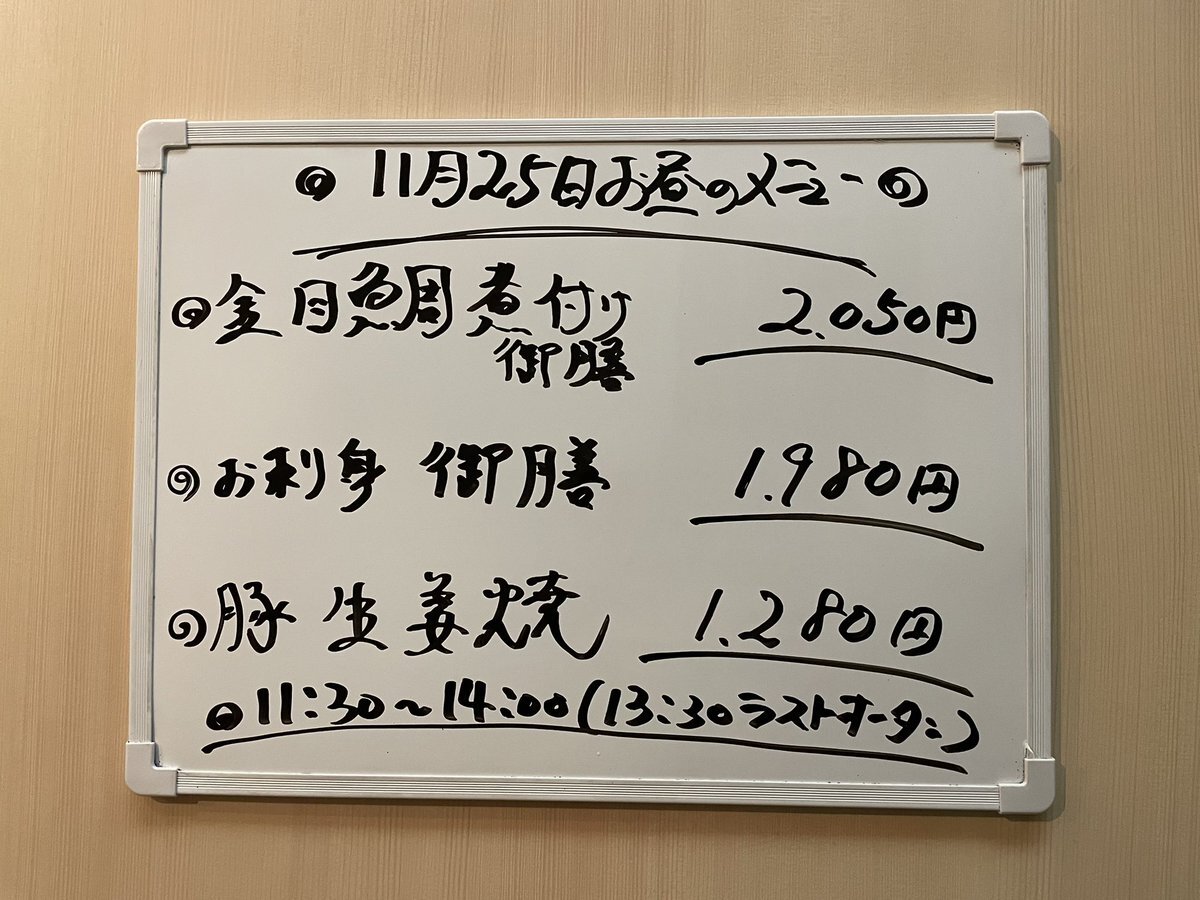 ◎ 11月25日お昼のメニュー ◎
◎ 金目鯛煮付け 2.050円
御膳
◎ お刺身 御膳 1.980円
◎ 豚 生姜焼 1.280円
◎ 11:30〜14:00(13:30ラストオーダー)